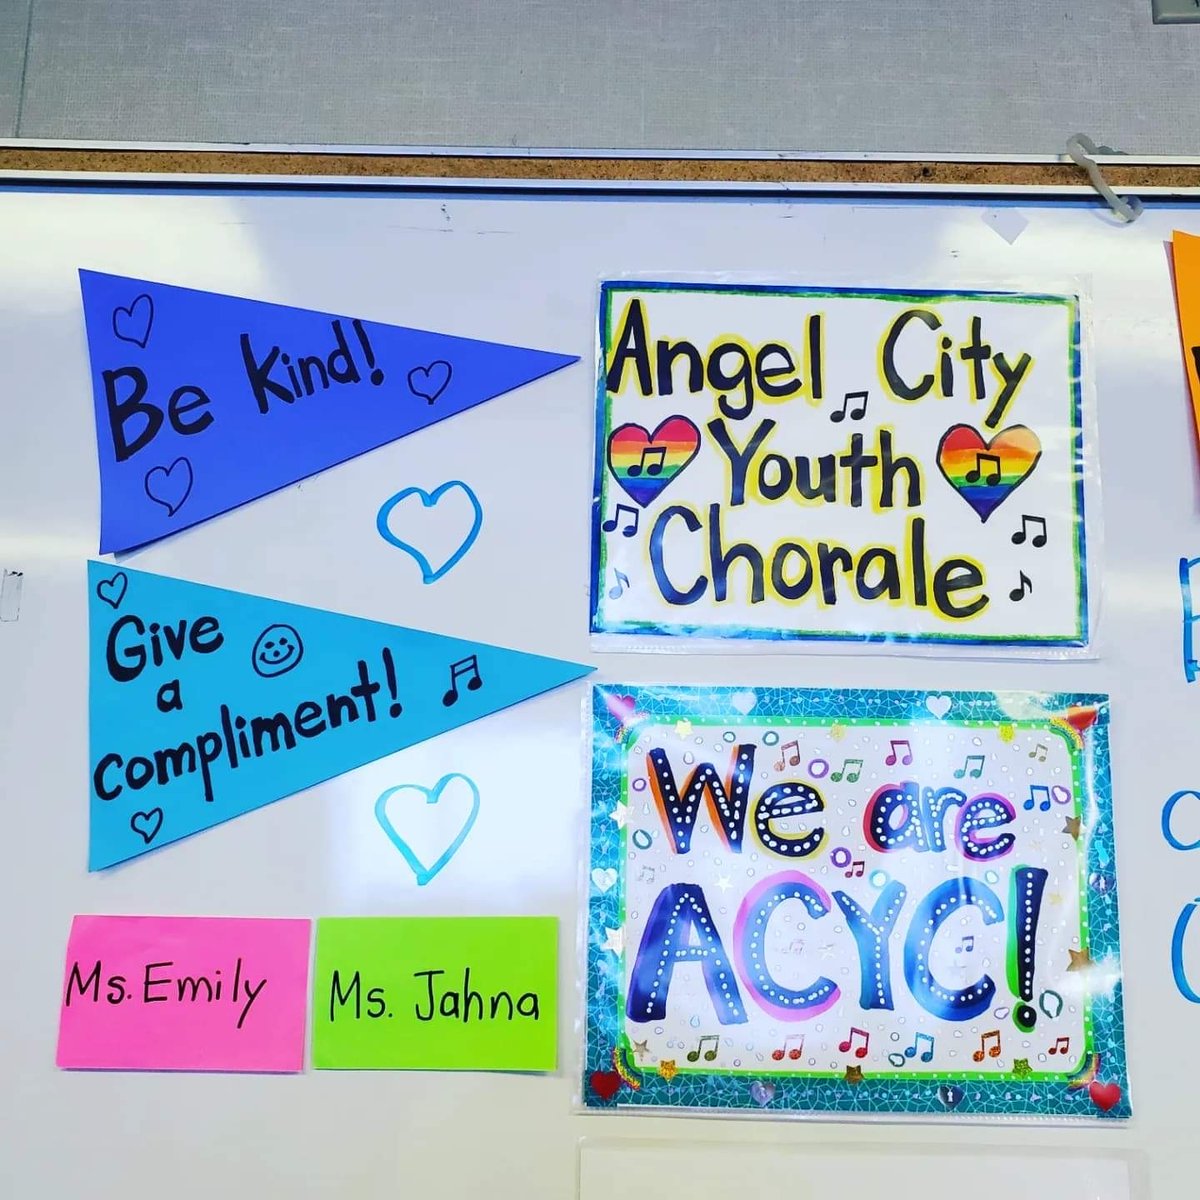 Be Kind!
Give
a
compliment!
Ms. Emily
Ms. Jahna
Angel City
Youth
Chorale
We are
ACYC!